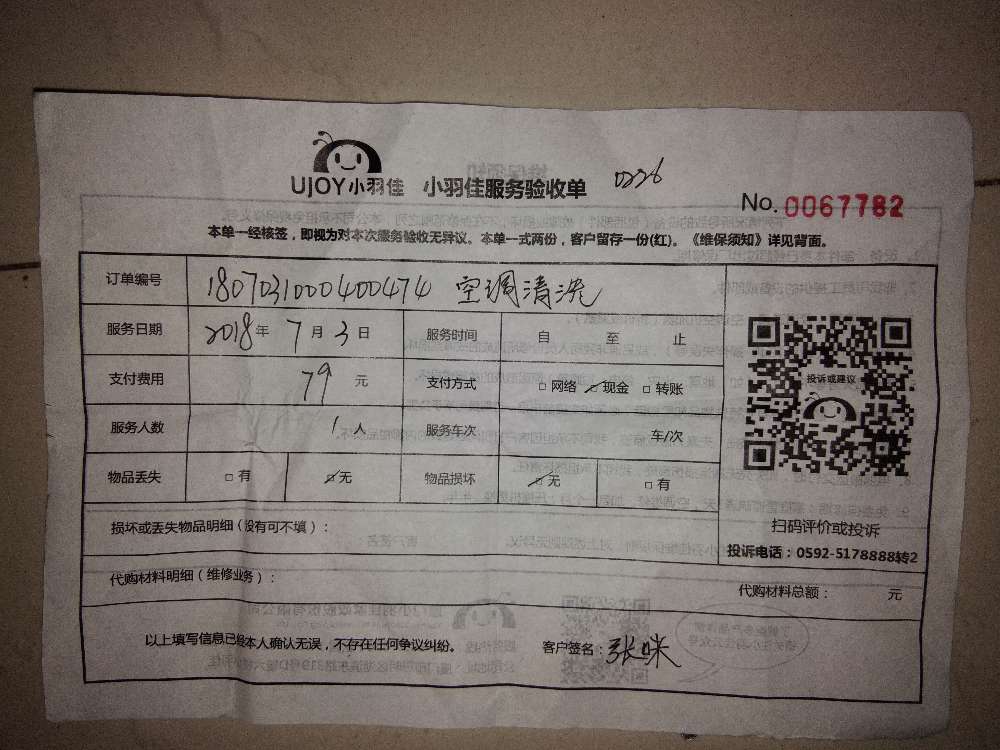 UJOY小羽佳 小羽佳服务验收单 0226
No. 0067782
本单一经核签，即视为对本次服务验收无异议。本单一式两份，客户留存一份(红)。《维保须知》详见背面。
订单编号 1807031000400474 空调清洗
服务日期 2018年 7月 3日 服务时间 自 至 止
支付费用 79 元 支付方式 □网络 ☑现金 □转账
投诉或建议
服务人数 1人 服务车次 车/次
物品丢失 □有 ☑无 物品损坏 ☑无 □有
损坏或丢失物品明细（没有可不填）：
扫码评价或投诉
投诉电话：0592-5178888转2
代购材料明细（维修业务）： 代购材料总额： 元
以上填写信息已经本人确认无误，不存在任何争议纠纷。 客户签名：张咪